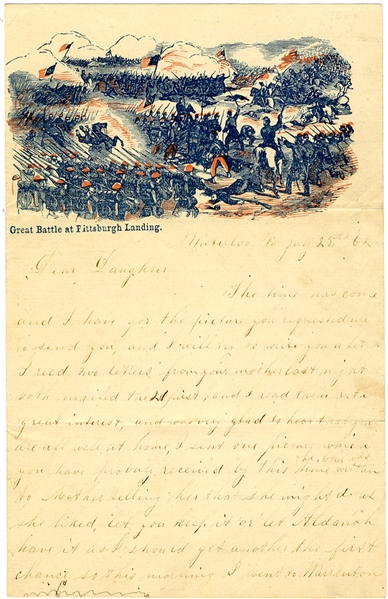 Great Battle at Pittsburgh Landing.
Waterloo Va July 25th 62
Dear Daughter
The time has come
and I have got the picture you requested me
to send you, and I will try to write you a letter
I recd two letters from your mother last night
both mailed the 21 first, and I read them with
great interest, and was very glad to hear that you
are all well at home, I sent one picture which
you have probaly received by this time
to Mother telling her that she might do as
she liked, let you keep it or let
have it as I should get another the first
chance so this morning I went to Warrenton